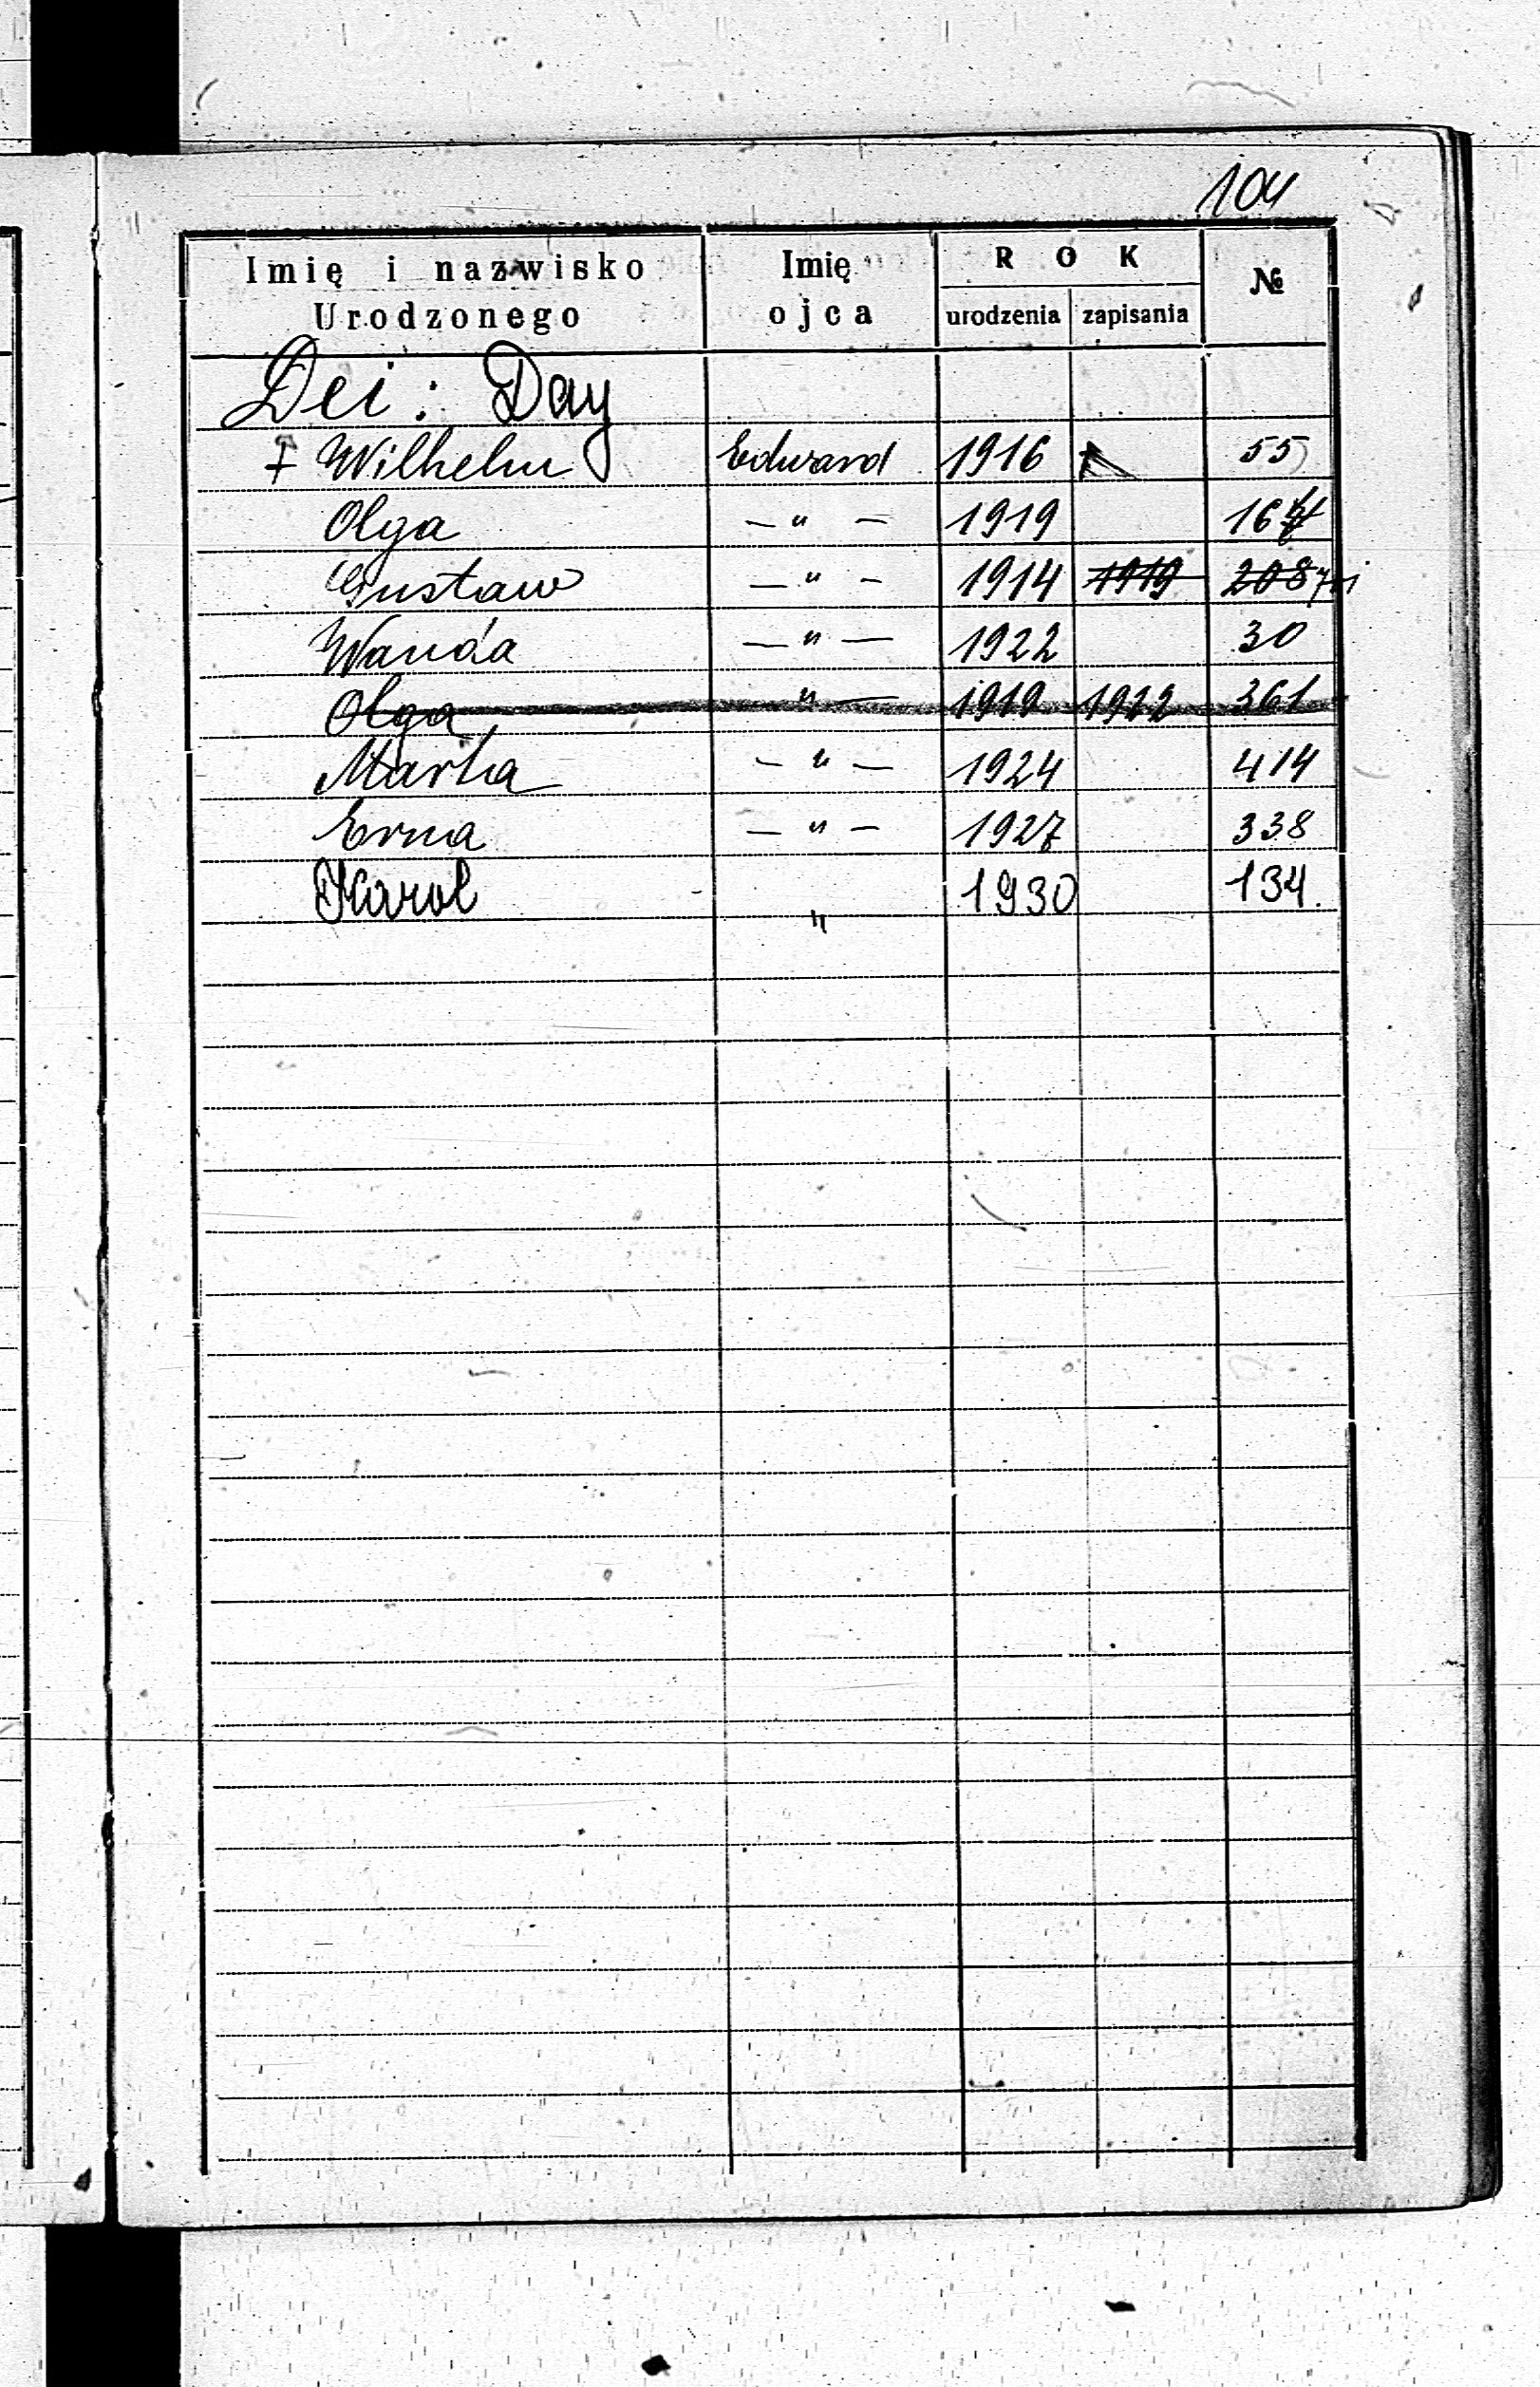 104
Imię i nazwisko Imię ROK №
Urodzonego ojca urodzenia zapisania
Dei: Day
‡ Wilhelm Edward 1916 55
Olga — " — 1919 164
Gustaw — " — 1914 1919 208
Wanda — " — 1922 30
Olga " — 1919 1922 361
Marta — " — 1924 414
Erna — " — 1927 338
Karol " 1930 134.